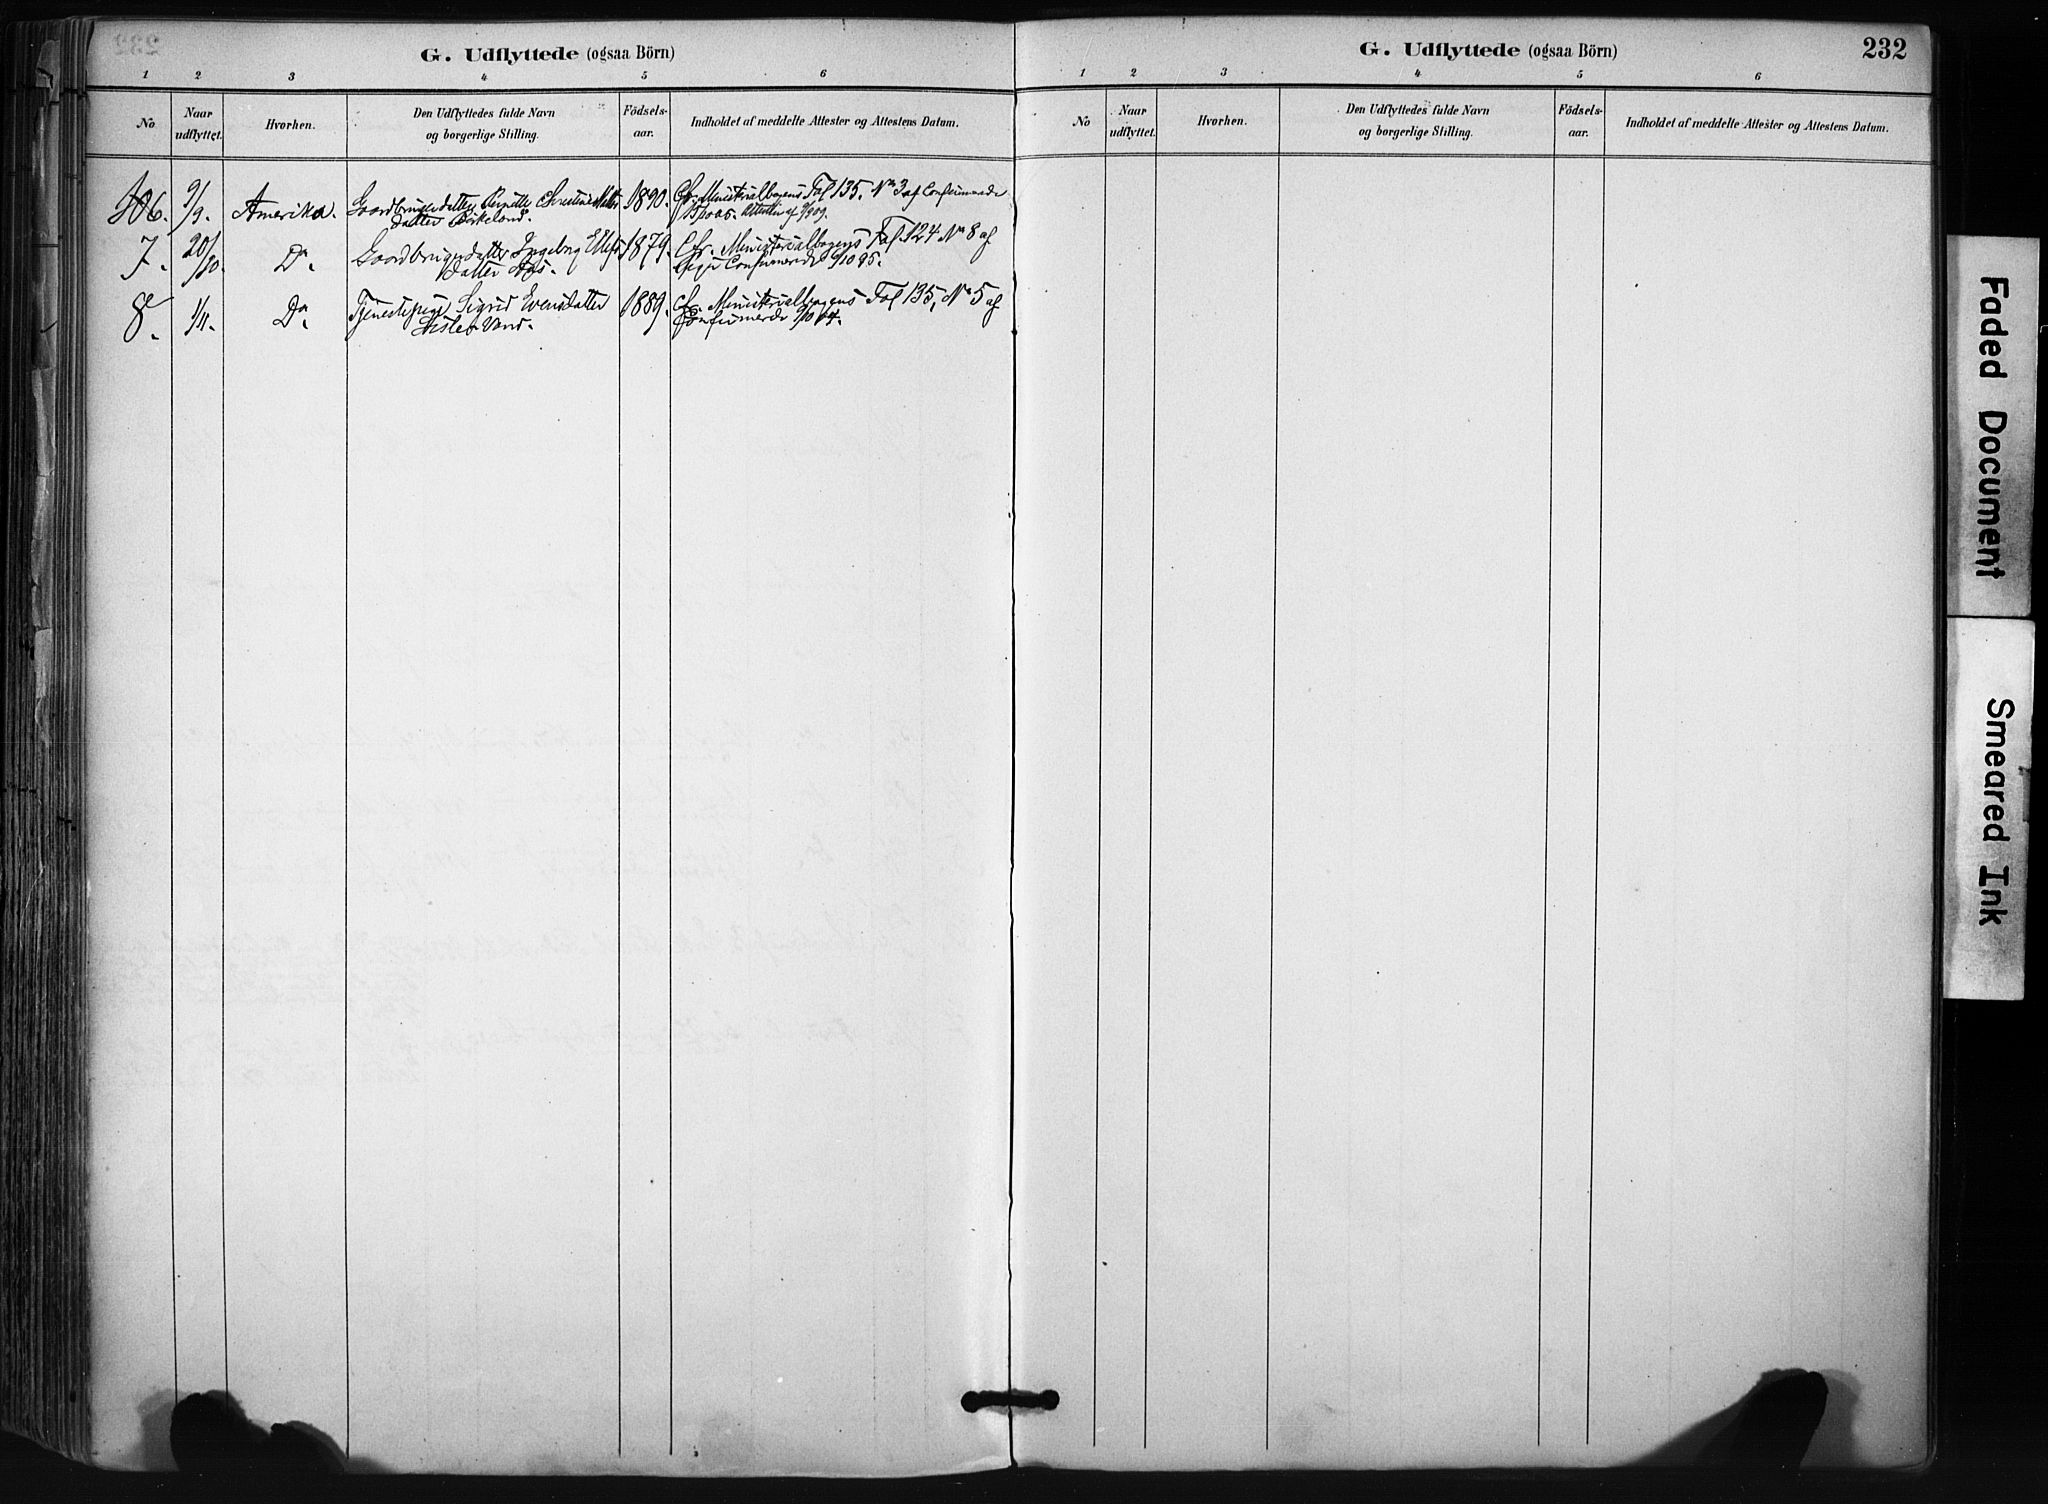 G. Udflyttede (ogsaa Börn)
1 2 3 4 5 6
No Naar udflyttet. Hvorhen. Den Udflyttedes fulde Navn og borgerlige Stilling. Födsels-aar. Indholdet af meddelte Attester og Attestens Datum.
106. 9/9. Amerika. Gaardbrugerdatter Christine 1890. Cfr. Ministerialbogens Fol 135. No 3 af Confirmerede
datter Birkeland. Attestin af
7. 20/10. Do. Gaardbrugerdatter Ingeborg 1879. Cfr. Ministerialbogens Fol. 124 No 8 af
datter Aas. Confirmerede 6/10 95.
8. 1/11. Do. Tjenestepige Sigrid Evensdatter 1889. Cfr. Ministerialbogens Fol 135, No 5 af
Confirmerede 9/10 04.
G. Udflyttede (ogsaa Börn) 232
1 2 3 4 5 6
No Naar udflyttet. Hvorhen. Den Udflyttedes fulde Navn og borgerlige Stilling. Födsels-aar. Indholdet af meddelte Attester og Attestens Datum.
Faded Document
Smeared Ink